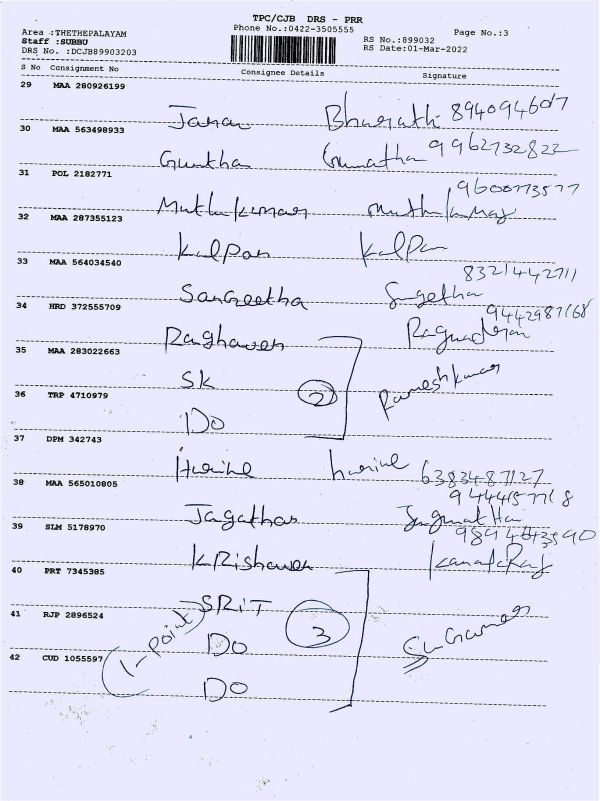 TPC/CJB DRS - PRR
Phone No.:0422-3505555
Area :THETHEPALAYAM
Staff :SUBBU
DRS No. :DCJB89903203
RS No.:899032
RS Date:01-Mar-2022
Page No.:3
S No Consignment No Consignee Details Signature
29 MAA 280926199
Bharath 894094607
30 MAA 563498933
Guntha Gunatha 9962732822
31 POL 2182771
9600773577
Muthukumar muthukumar
32 MAA 287355123
Kalpan Kalpan
33 MAA 564034540
8321442711
Sangeetha Sngetha
34 HRD 372555709
9442987168
Raghaven
35 MAA 283022663
SK 2 Rameshkumar
36 TRP 4710979
Do
37 DPM 342743
Harine harine 6383487127
38 MAA 565010805
9444157718
Jagathas
39 SLM 5178970
9894643590
KRishaven KanakRaj
40 PRT 7345385
SRIT 3
41 RJP 2896524
1-Point Do
42 CUD 1055597
Do